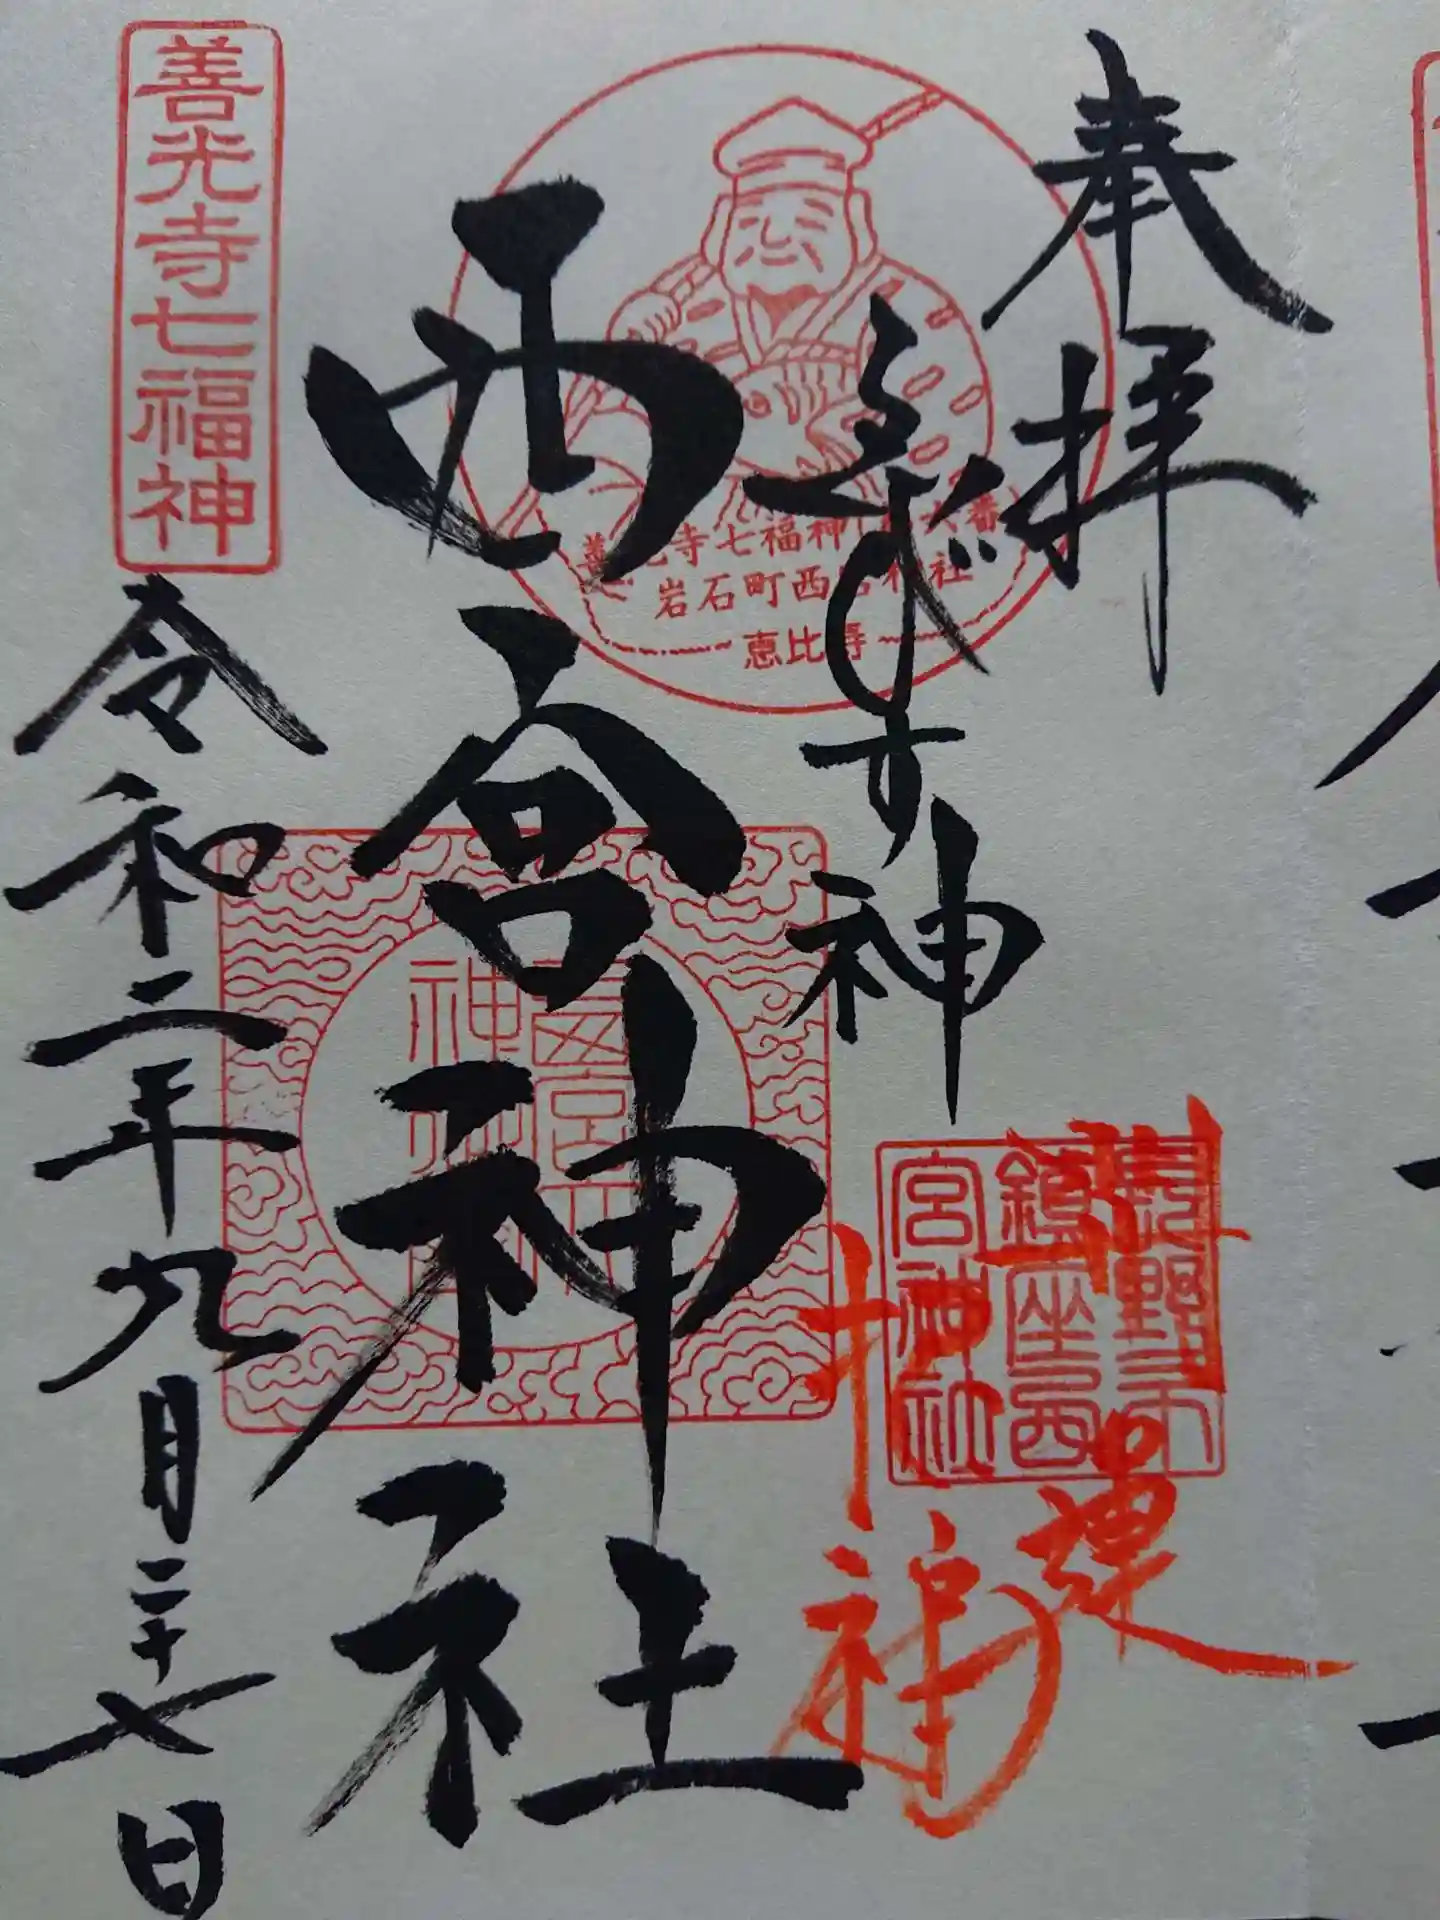 奉拝
ゑびす神
西宮神社
令和二年九月二十七日
善光寺七福神
善光寺七福神
岩石町西宮神社
恵比寿
長野市
鎮座西
宮神社